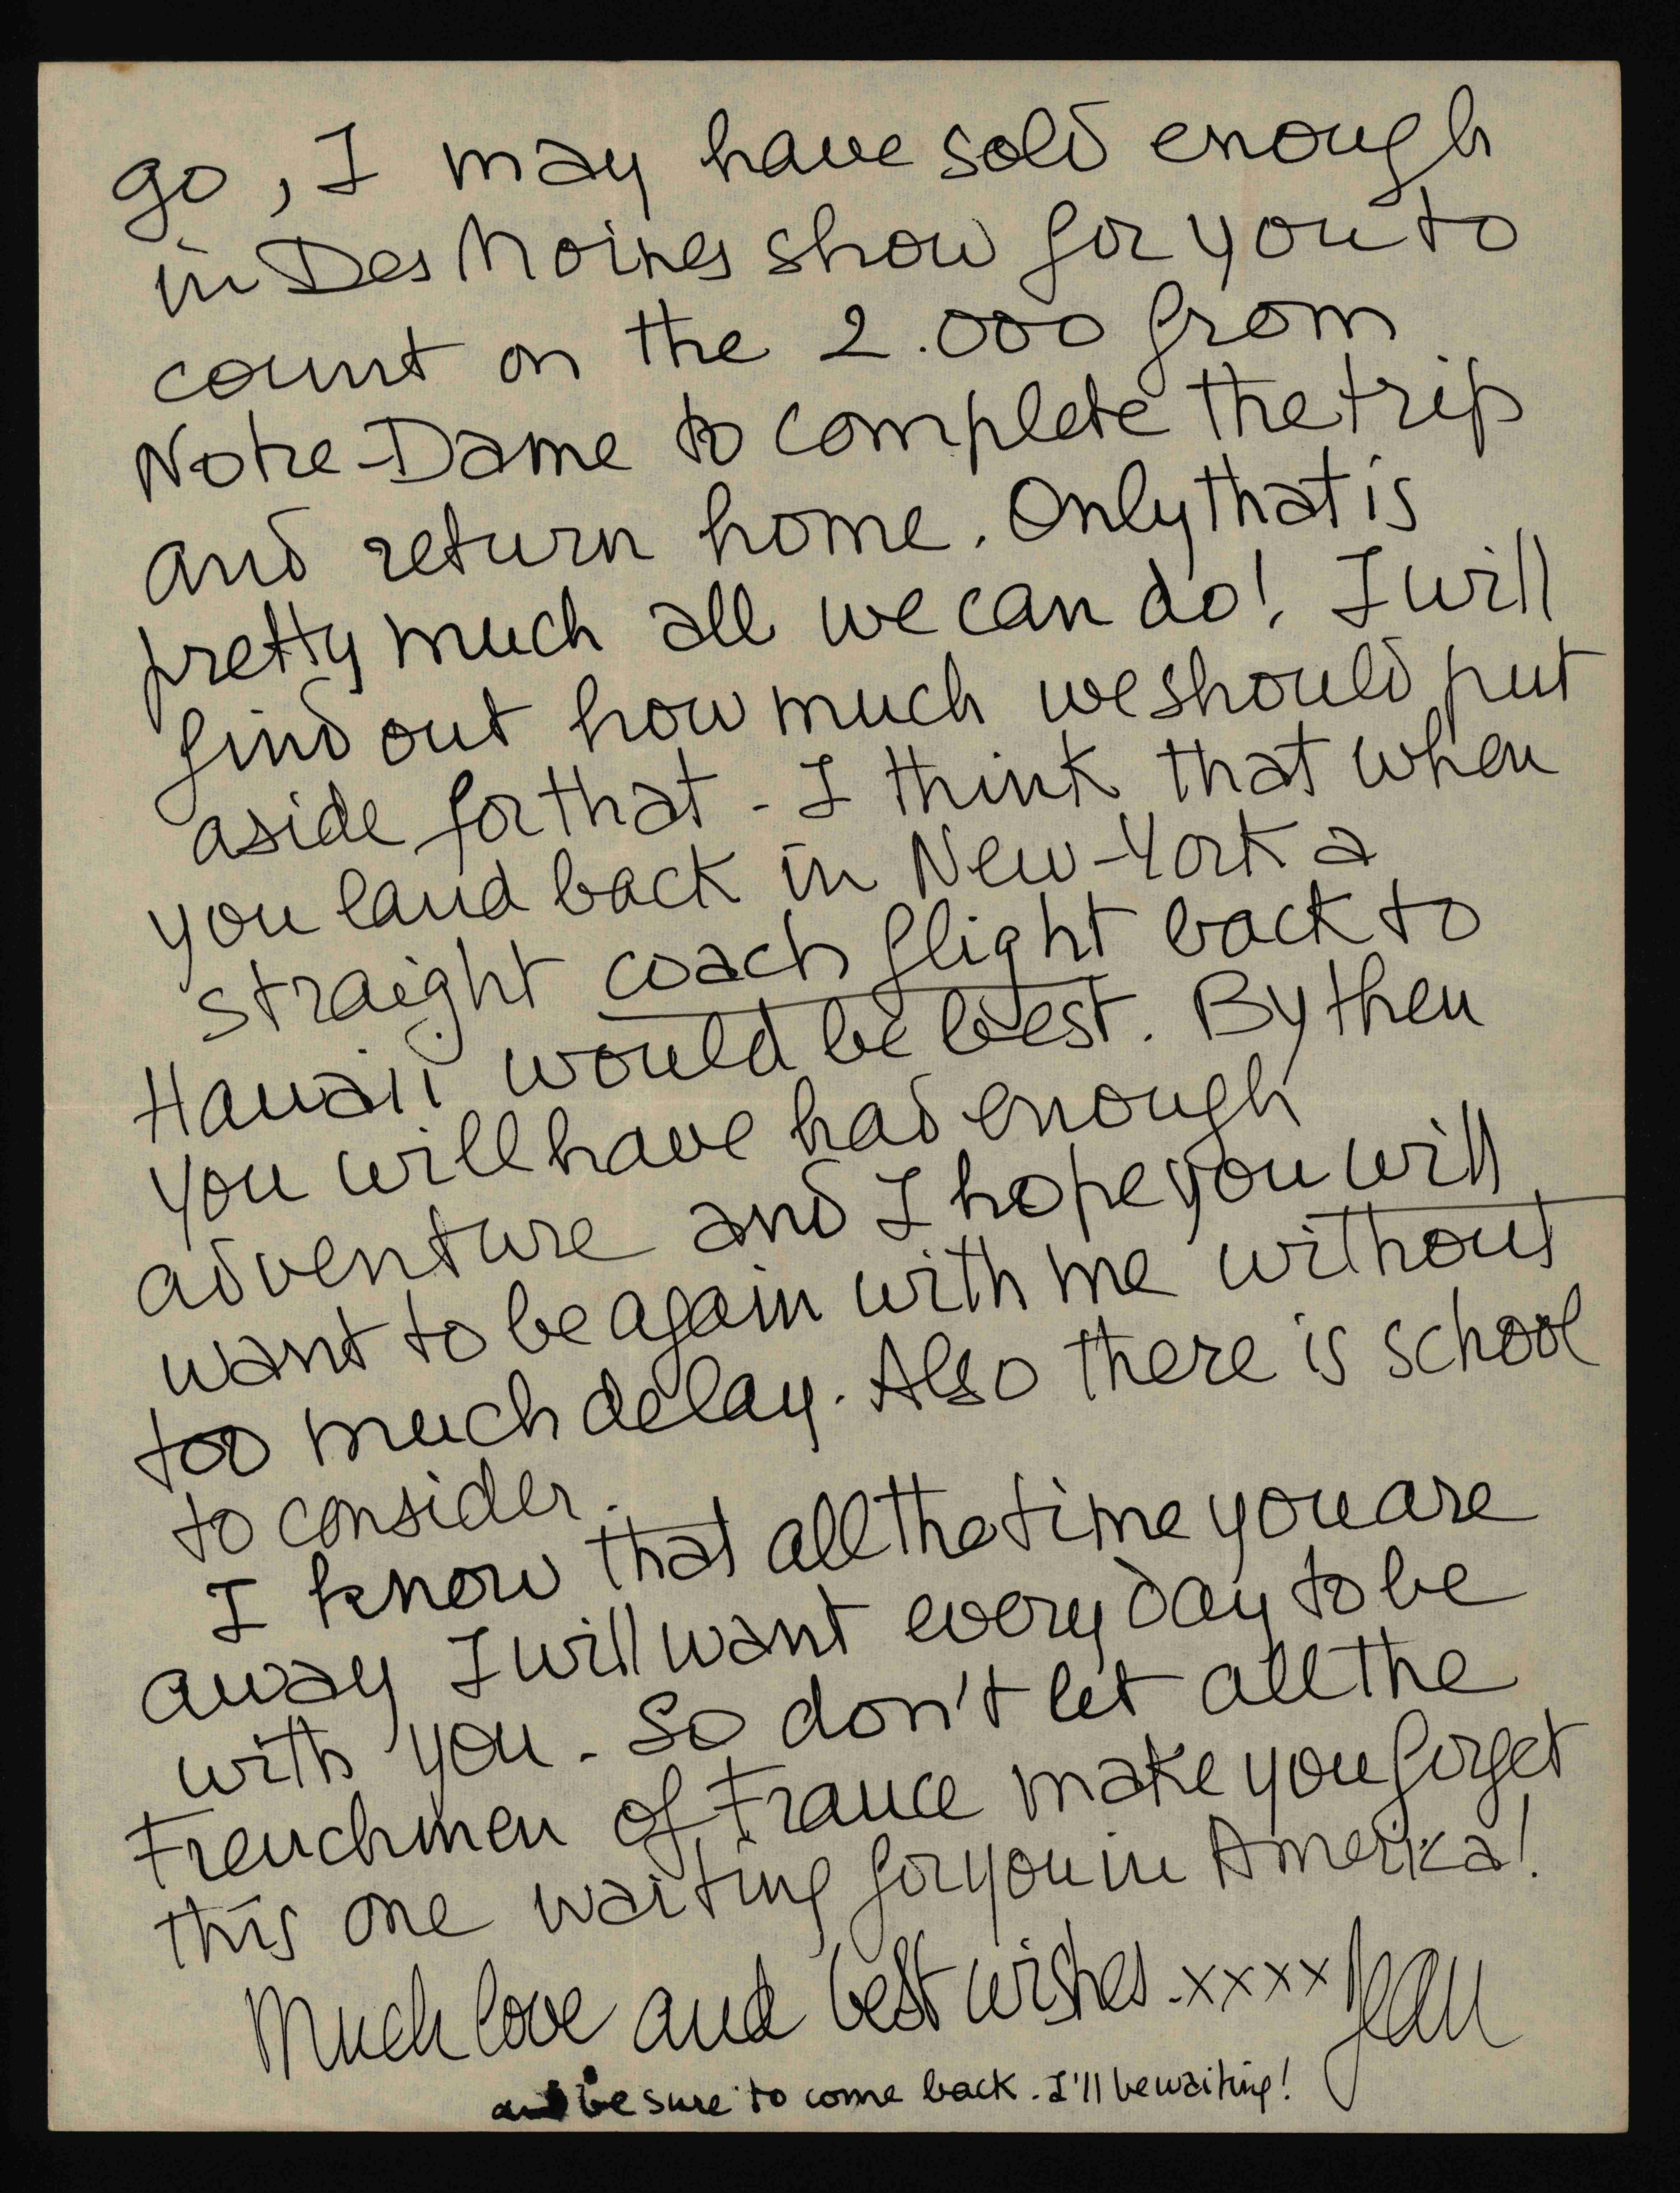 go, I may have sold enough
in Des Moines show for you to
count on the 2.000 from
Notre-Dame to complete the trip
and return home. Only that is
pretty much all we can do! I will
find out how much we should put
aside for that - I think that when
you land back in New-York a
straight coach flight back to
Hawaii would be best. By then
you will have had enough
adventure and I hope you will
want to be again with me without
too much delay. Also there is school
to consider.
I know that all the time you are
away I will want every day to be
with you - So don't let all the
Frenchmen of France make you forget
this one waiting for you in Amerika!
Much love and best wishes - xxxx Jean
and be sure to come back - I'll be waiting!